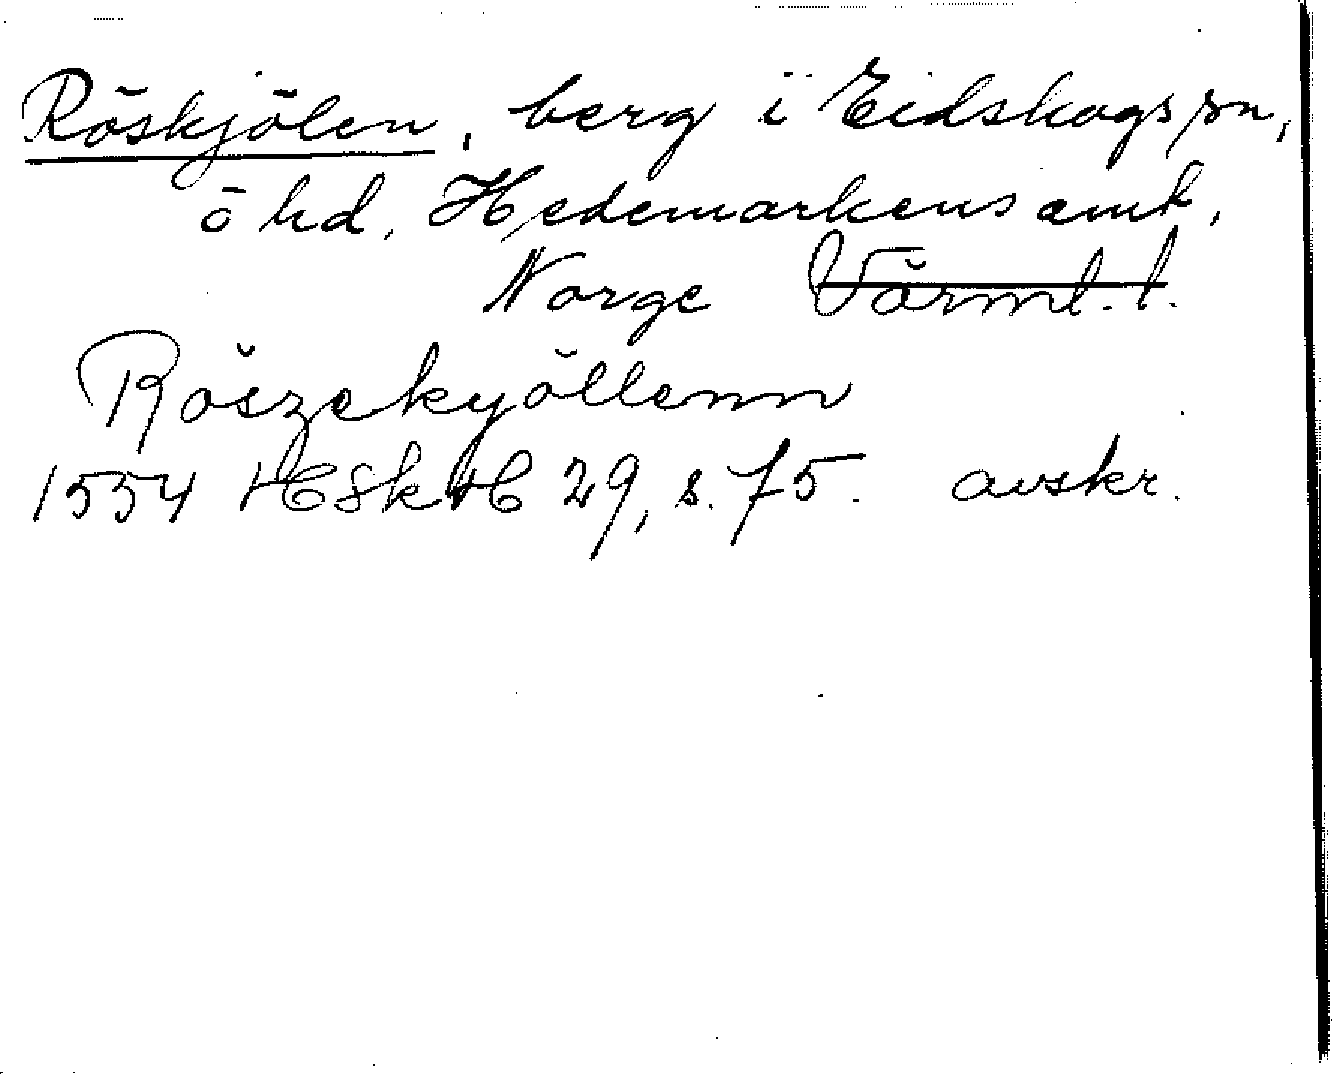 Röskjölen, berg i Eidskogs sn,
ö hd, Hedemarkens amt,
Norge Värml. l.
Röszekyöllenn
1554 HSkH 29, s. 75. avskr.